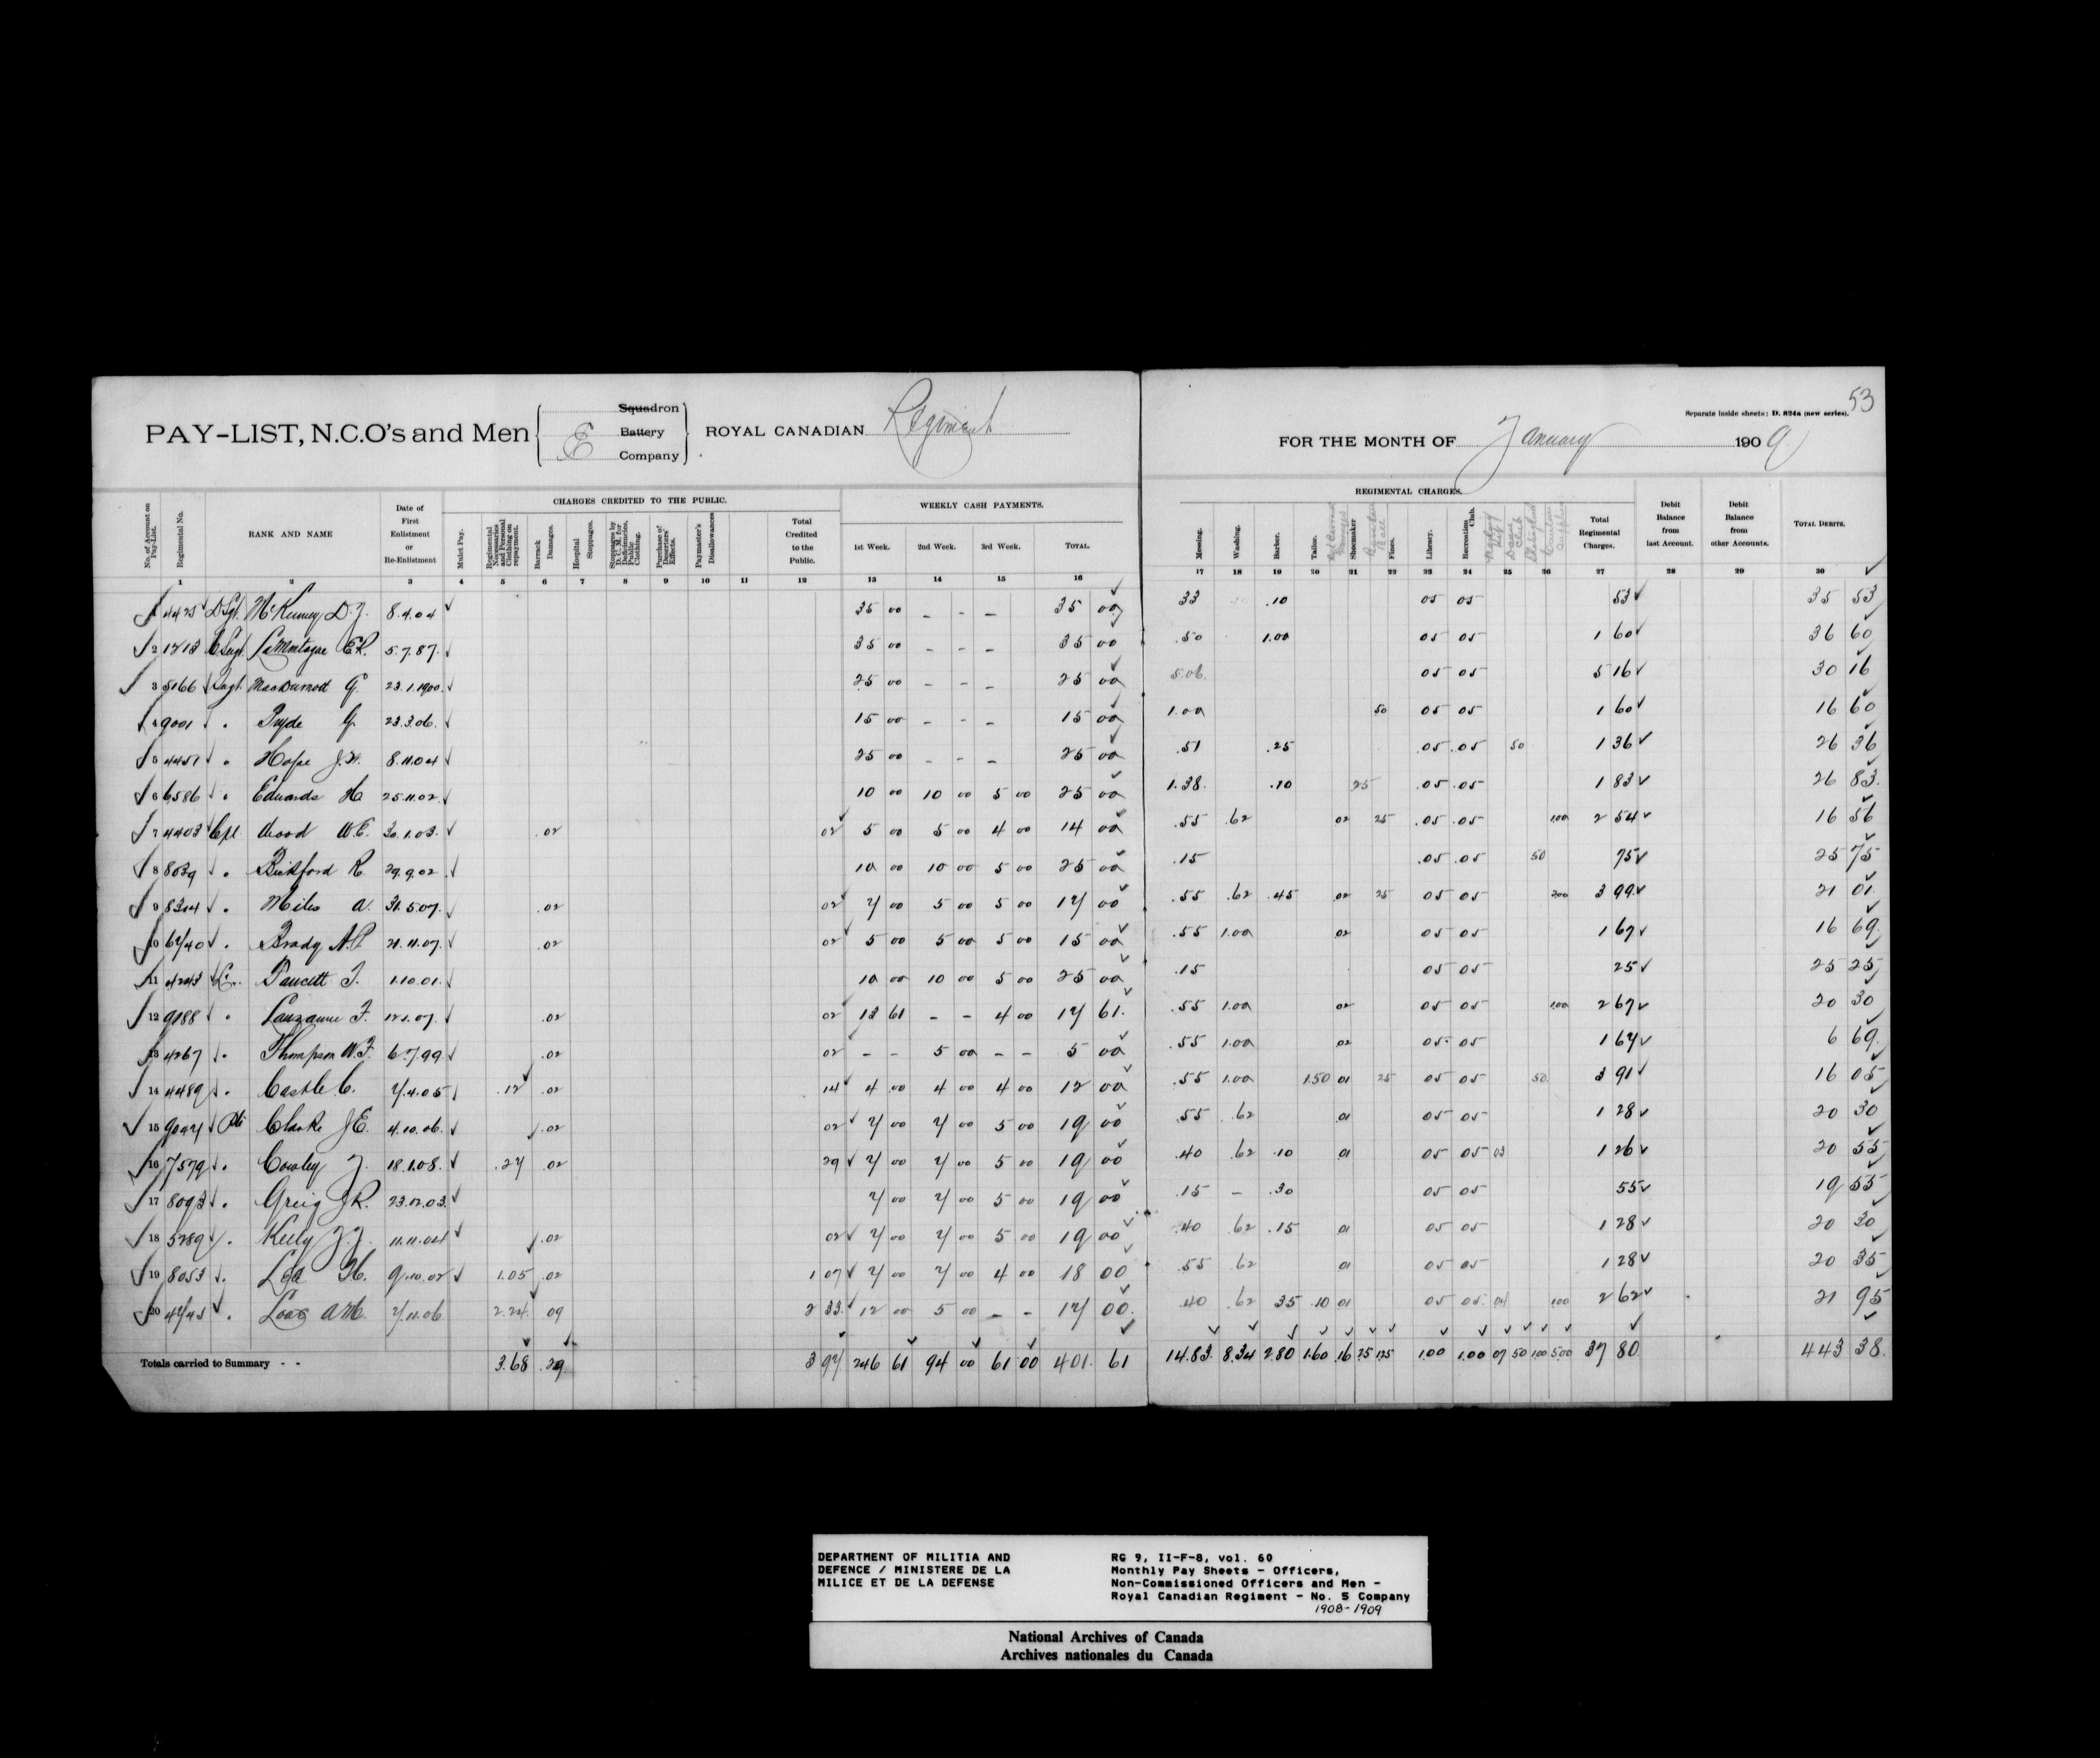 53
Separate inside sheets; D. 824a (new series).
PAY-LIST, N.C.O's and Men { Squadron E Battery Company } ROYAL CANADIAN Regiment FOR THE MONTH OF January 1909
CHARGES CREDITED TO THE PUBLIC. WEEKLY CASH PAYMENTS. REGIMENTAL CHARGES.
No. of Account on Pay-List. Regimental No. RANK AND NAME Date of First Enlistment or Re-Enlistment Mulct Pay. Regimental Necessaries and Personal Clothing on repayment. Barrack Damages. Hospital Stoppages. Stoppages by D. C. M. for Deficiencies, Public Clothing. Purchase of Deserters' Effects. Paymaster's Disallowances Total Credited to the Public. 1st Week. 2nd Week. 3rd Week. TOTAL. Messing. Washing. Barber. Tailor. Shoemaker Fines. Library. Recreation Club. Total Regimental Charges. Debit Balance from last Account. Debit Balance from other Accounts. TOTAL DEBITS.
1 2 3 4 5 6 7 8 9 10 11 12 13 14 15 16 17 18 19 20 21 22 23 24 25 26 27 28 29 30
1 4425 McKinney D.J. 8.4.04 35 00 - - - 35 00 33 .10 05 05 53 35 53
2 1213 LaMontagne E.R. 5.7.87. 35 00 - - - 35 00 .50 1.00 05 05 1 60 36 60
3 5166 Sergt MacDermod G. 23.1.1900. 25 00 - - - 25 00 5.06. 05 05 5 16 30 16
4 9001 " Pryde G 23.3.06. 15 00 - - - 15 00 1.00 50 05 05 1 60 16 60
5 4451 " Hope J.W. 8.11.04 25 00 - - - 25 00 .51 .25 .05 .05 50 1 36 26 36
6 6586 " Edwards H 25.11.02. 10 00 10 00 5 00 25 00 1.38. .10 25 .05 .05 1 83 26 83
7 4403 Cpl. Wood W.E. 30.1.03. .02 02 5 00 5 00 4 00 14 00 .55 .62 02 25 .05 .05 100 2 54 16 56
8 8039 " Bickford R. 29.9.02. 10 00 10 00 5 00 25 00 .15 .05 .05 50 75 25 75
9 8314 " Miles A. 31.5.07. .02 02 7 00 5 00 5 00 17 00 .55 .62 .45 02 25 05 05 200 3 99 21 01
10 6740 " Brady A.P. 21.11.07. .02 02 5 00 5 00 5 00 15 00 .55 1.00 02 05 05 1 67 16 69
11 4243 Fawcett T. 1.10.01. 10 00 10 00 5 00 25 00 .15 05 05 25 25 25
12 9188 " Lauzanne F. 12.1.07. .02 02 13 61 - - 4 00 17 61. .55 1.00 02 05 05 100 2 67 20 30
13 4267 " Thompson W.F. 6.7.99 .02 02 - - 5 00 - - 5 00 .55 1.00 02 05 05 1 67 6 69
14 4489 " Castle C. 7.4.05 .12 .02 14 4 00 4 00 4 00 12 00 .55 1.00 1.50 01 25 05 05 50 3 91 16 05
15 9047 Pte Clarke J.E. 4.10.06. .02 02 7 00 7 00 5 00 19 00 .55 .62 01 05 05 1 28 20 30
16 7579 " Cowley J. 18.1.08. .27 .02 29 7 00 7 00 5 00 19 00 .40 .62 .10 01 05 05 03 1 26 20 55
17 8093 " Greig J.R. 23.12.03. 7 00 7 00 5 00 19 00 .15 - .30 05 05 55 19 55
18 5289 " Keely J.J. 11.11.04 .02 02 7 00 7 00 5 00 19 00 .40 .62 .15 01 05 05 1 28 20 30
19 8053 " Lea H. 9.10.02 1.05 .02 1 07 7 00 7 00 4 00 18 00 .55 .62 01 05 05 1 28 20 35
20 4743 " A.M. 7.11.06 2.24 09 2 33 12 00 5 00 - - 17 00. .40 .62 35 .10 01 05 05 04 100 2 62 21 95
Totals carried to Summary - - 3.68 .29 3 97 246 61 94 00 61 00 401. 61 14.83 8.34 2.80 1.60 .16 25 1.25 1.00 1.00 07 50 1.00 5.00 37 80 443 38.
DEPARTMENT OF MILITIA AND
DEFENCE / MINISTERE DE LA
MILICE ET DE LA DEFENSE
RG 9, II-F-8, vol. 60
Monthly Pay Sheets - Officers,
Non-Commissioned Officers and Men -
Royal Canadian Regiment - No. 5 Company
1908-1909
National Archives of Canada
Archives nationales du Canada